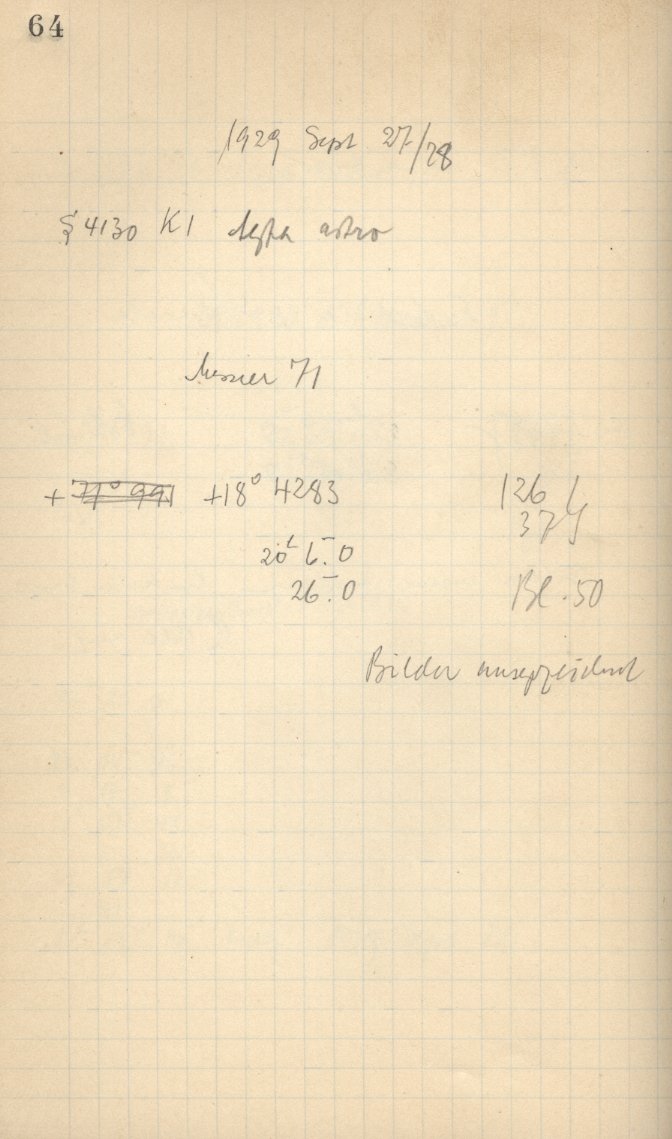 64
1929 Sept 27/28
S 4130 K I Agfa astro
Messier 71
+ 71° 991 +18° 4283 126
37
20 6.0
26.0 Bl. 50
Bilder ausgezeichnet